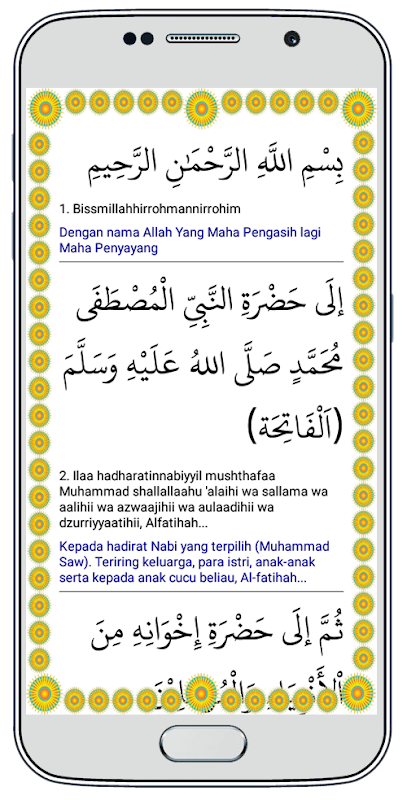 بِسْمِ اللَّهِ الرَّحْمَٰنِ الرَّحِيمِ
1. Bissmillahhirrohmannirrohim
Dengan nama Allah Yang Maha Pengasih lagi
Maha Penyayang
إلَى حَضْرَةِ النَّبِيِّ الْمُصْطَفَى
مُحَمَّدٍ صَلَّى اللهُ عَلَيْهِ وَسَلَّمَ
(اَلْفَاتِحَة)
2. Ilaa hadharatinnabiyyil mushthafaa
Muhammad shallallaahu 'alaihi wa sallama wa
aalihii wa azwaajihii wa aulaadihii wa
dzurriyyaatihii, Alfatihah...
Kepada hadirat Nabi yang terpilih (Muhammad
Saw). Teriring keluarga, para istri, anak-anak
serta kepada anak cucu beliau, Al-fatihah...
ثُمَّ إلَى حَضْرَةِ إِخْوَانِهِ مِنَ